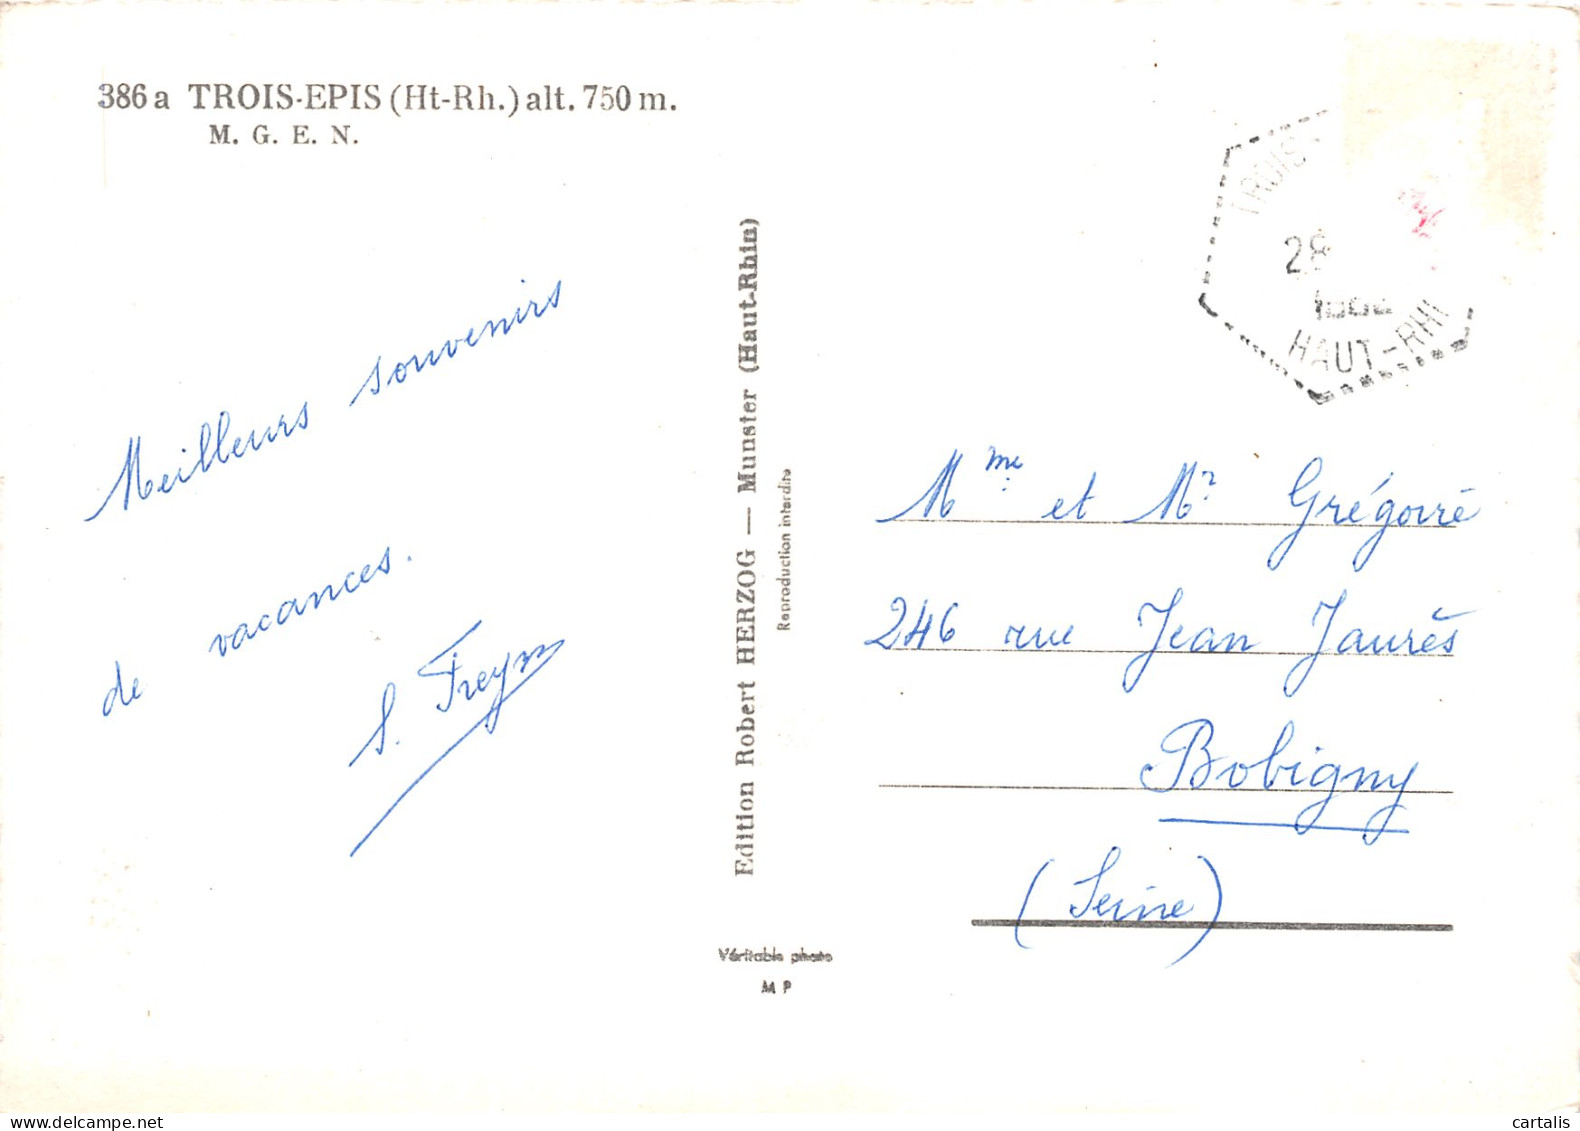 386 a TROIS-EPIS (Ht-Rh.) alt. 750 m.
M. G. E. N.
Meilleurs souvenirs
de vacances.
Edition Robert HERZOG — Munster (Haut-Rhin)
Reproduction interdite
Véritable photo
M P
TROIS-
28
HAUT-RHI
Mme et Mr Grégoire
246 rue Jean Jaurès
Bobigny
(Seine)
cartalis